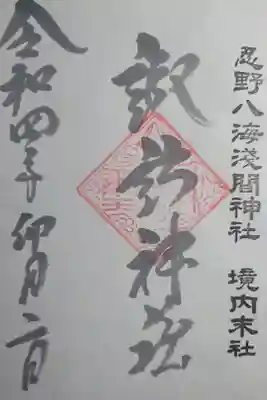 忍野八海淺間神社　境内末社
諏訪神社
令和四年卯月二日